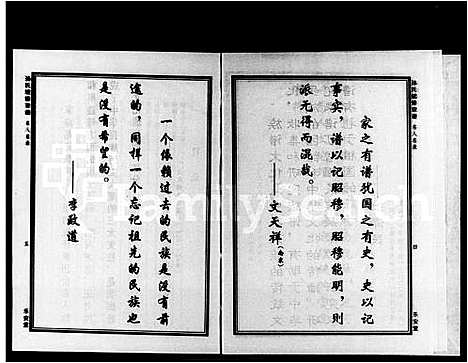 家之有谱犹国之有史，史以记
事实，谱以记昭穆，昭穆能明，则
派元得而混哉。
——文天祥(南宋)
四
乐安堂
名人名录
一个依赖过去的民族是没有前
途的，同样一个忘记祖先的民族也
是没有希望的。
——李政道
五
乐安堂
FamilySearch